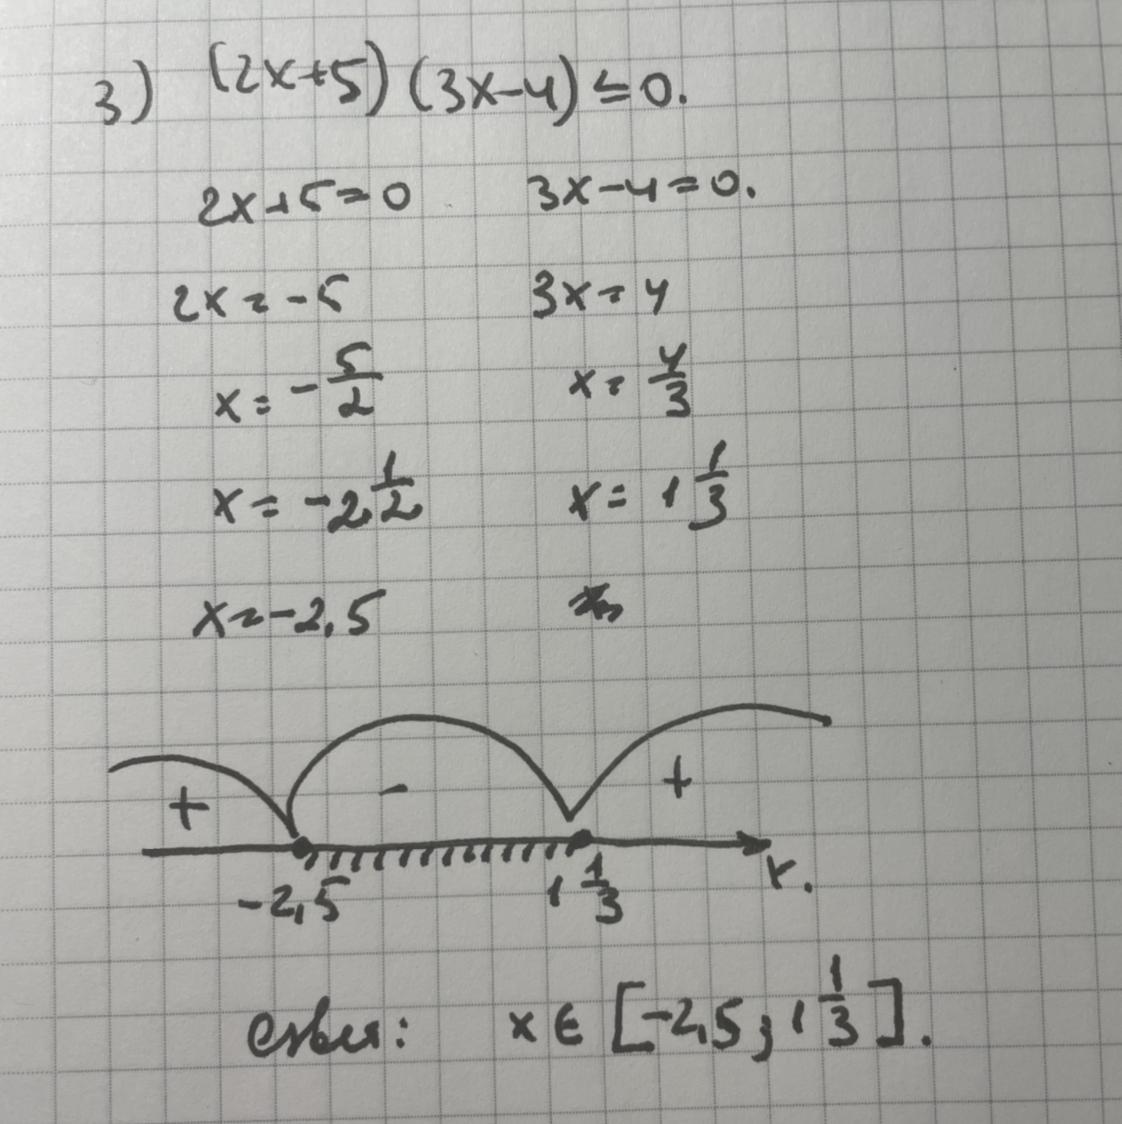 3) (2x+5)(3x-4)≤0.
2x+5=0 3x-4=0.
2x=-5 3x=4
x=-5/2 x=4/3
x=-2 1/2 x=1 1/3
x=-2,5
+ - +
-2,5 1 1/3 x.
ответ: x∈[-2,5; 1 1/3].